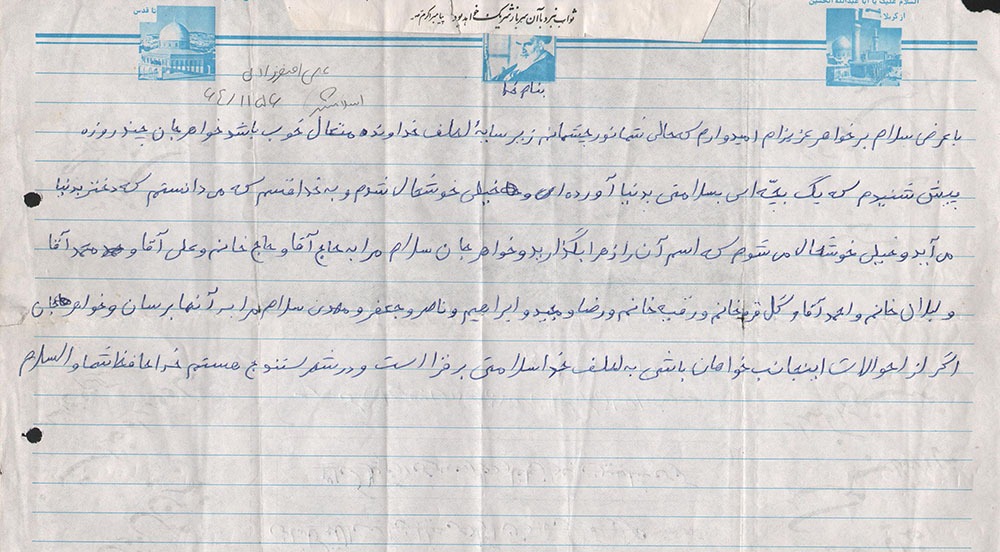 السلام علیک یا ابا عبدالله الحسین
از کربلا
تا قدس
ثواب نبرد با آن سرباز شریک خواهد بود پیامبر اکرم ص
بنام خدا
علی
اسلامشهر
۶۴/۱۱/۵۶
با عرض سلام بر خواهر عزیزم امیدوارم که حالی شما نور چشمانم زیر سایهٔ لطف خداوند متعال خوب باشد خواهر جان چند روزه
پیش شنیدم که یک بچّه ای بسلامتی بدنیا آورده ای و خیلی خوشحال شدم و به خدا قسم که می دانستم که دختر بدنیا
می آید و خیلی خوشحال می شوم که اسم آن را زهرا بگذارید و خواهر جان سلام مرا به حاج آقا و حاج خانم و علی آقا و محمد آقا
و خانم و احمد آقا و گل خانم و رقیه خانم و رضا و مجید و ابراهیم و ناصر و جعفر و مهدی سلام مرا به آنها برسان و خواهر جان
اگر از احوالات اینجانب خواهان باشی به لطف خدا سلامتی برقرا است و در شهر سنندج هستم خدا حافظ شما والسلام